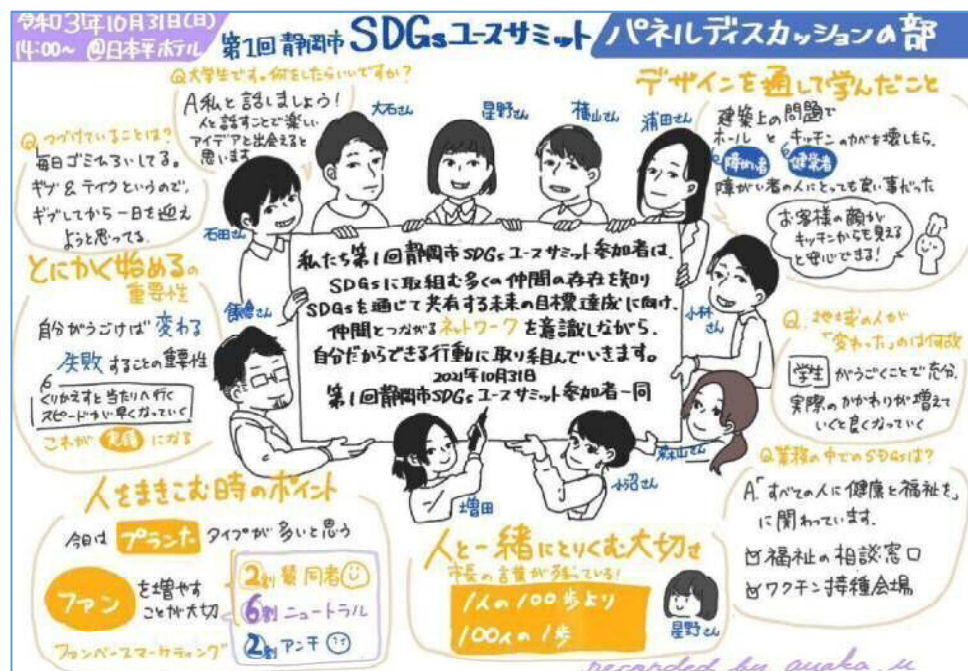 令和3年10月31日(日)
14:00~ @日本平ホテル
第1回 静岡市 SDGsユースサミット パネルディスカッションの部
Q大学生です。何をしたらいいですか?
A 私と話しましょう!
人と話すことで楽しい
アイデアと出会えると
思います
Q つづけていることは?
毎日ゴミひろいしてる。
ギブ&テイクというので、
ギブしてから一日を迎え
ようと思ってる。
とにかく始めるの
重要性
自分がうごけば 変わる
失敗することの重要性
くりかえすと当たりへ行く
スピードが早くなっていく
これが 実績 になる
石田さん
大石さん
星野さん
横山さん
浦田さん
飯倉さん
小林さん
森山さん
小沼さん
増田
私たち第1回静岡市SDGsユースサミット参加者は、
SDGsに取組む多くの仲間の存在を知り
SDGsを通じて共有する未来の目標達成に向け、
仲間とつながるネットワークを意識しながら、
自分だからできる行動に取り組んでいきます。
2021年10月31日
第1回静岡市SDGsユースサミット参加者一同
デザインを通して学んだこと
建築上の問題で
ホール と キッチンのかべを壊したら、
障がい者 健常者
障がい者の人にとっても良い事だった
お客様の顔が
キッチンからも見える
と安心できる!
Q. 地域の人が
「変わった」のは何故
学生 がうごくことで充分。
実際のかかわりが増えて
いくと良くなっていく
Q業務の中でのSDGsは?
A.「すべての人に健康と福祉を」
に関わっています。
福祉の相談窓口
ワクチン接種会場
人をまきこむ時のポイント
今日は プランた タイプが多いと思う
ファン を増やす
ことが大切
ファンベースマーケティング
2割 賛同者
6割 ニュートラル
2割 アンチ
人と一緒にとりくむ大切さ
市長の言葉が残っている!
1人の100歩より
100人の1歩
星野さん
recorded by ayaka.u